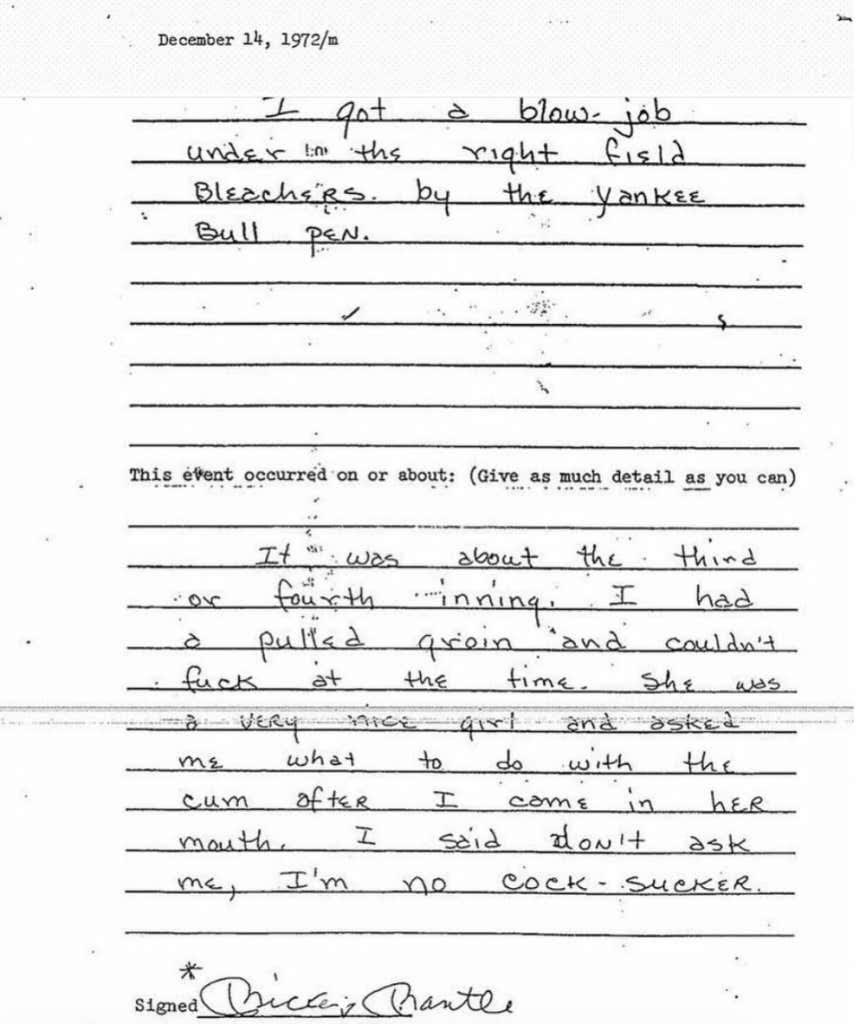 December 14, 1972/m
I got a blow-job
under in the right field
Bleachers. by the Yankee
Bull pen.
This event occurred on or about: (Give as much detail as you can)
It was about the third
or fourth inning. I had
a pulled groin and couldn't
fuck at the time. She was
a very nice girl and asked
me what to do with the
cum after I come in her
mouth. I said don't ask
me, I'm no cock-sucker.
*
Signed Mickey Mantle